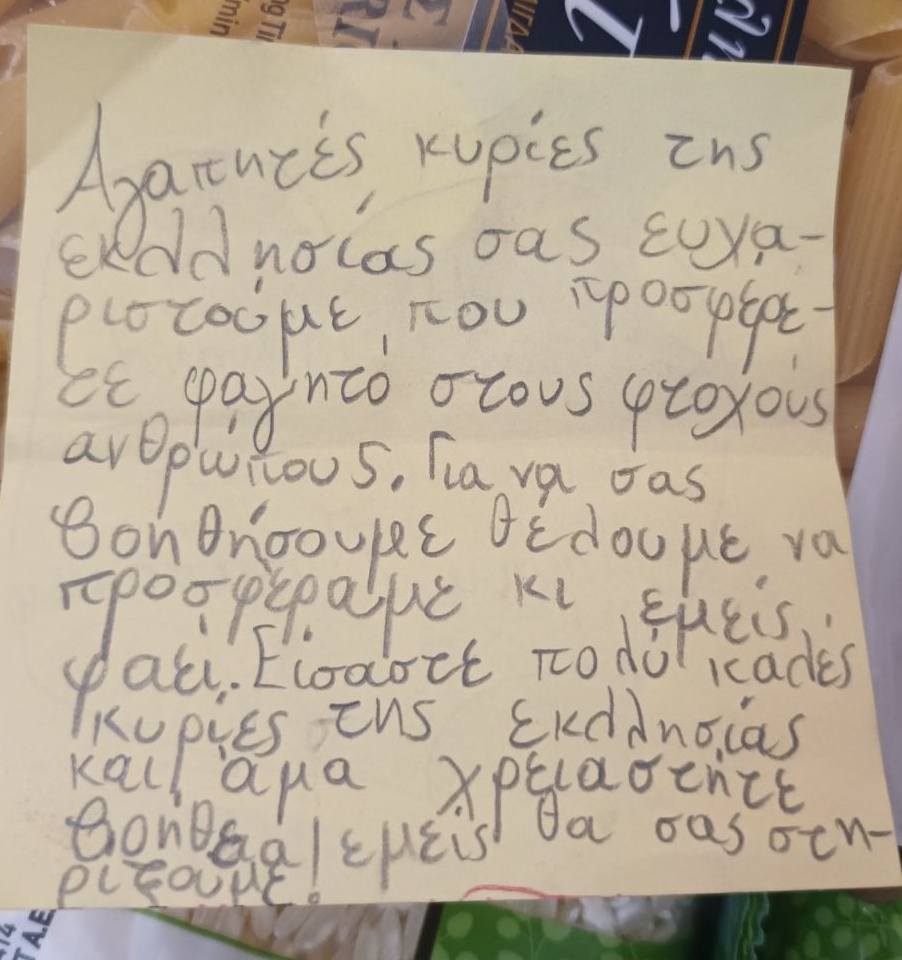 Αγαπητές κυρίες της
εκλλησίας σας ευχα-
ριστούμε που προσφέρε-
τε φαγητό στους φτοχούς
ανθρώπους. Για να σας
βοηθήσουμε θέλουμε να
προσφέραμε κι εμείς
φαεί. Είσαστε πολύ καλές
κυρίες της εκλλησίας
και άμα χρειαστήτε
βοήθεια εμείς θα σας στη-
ριξουμε!